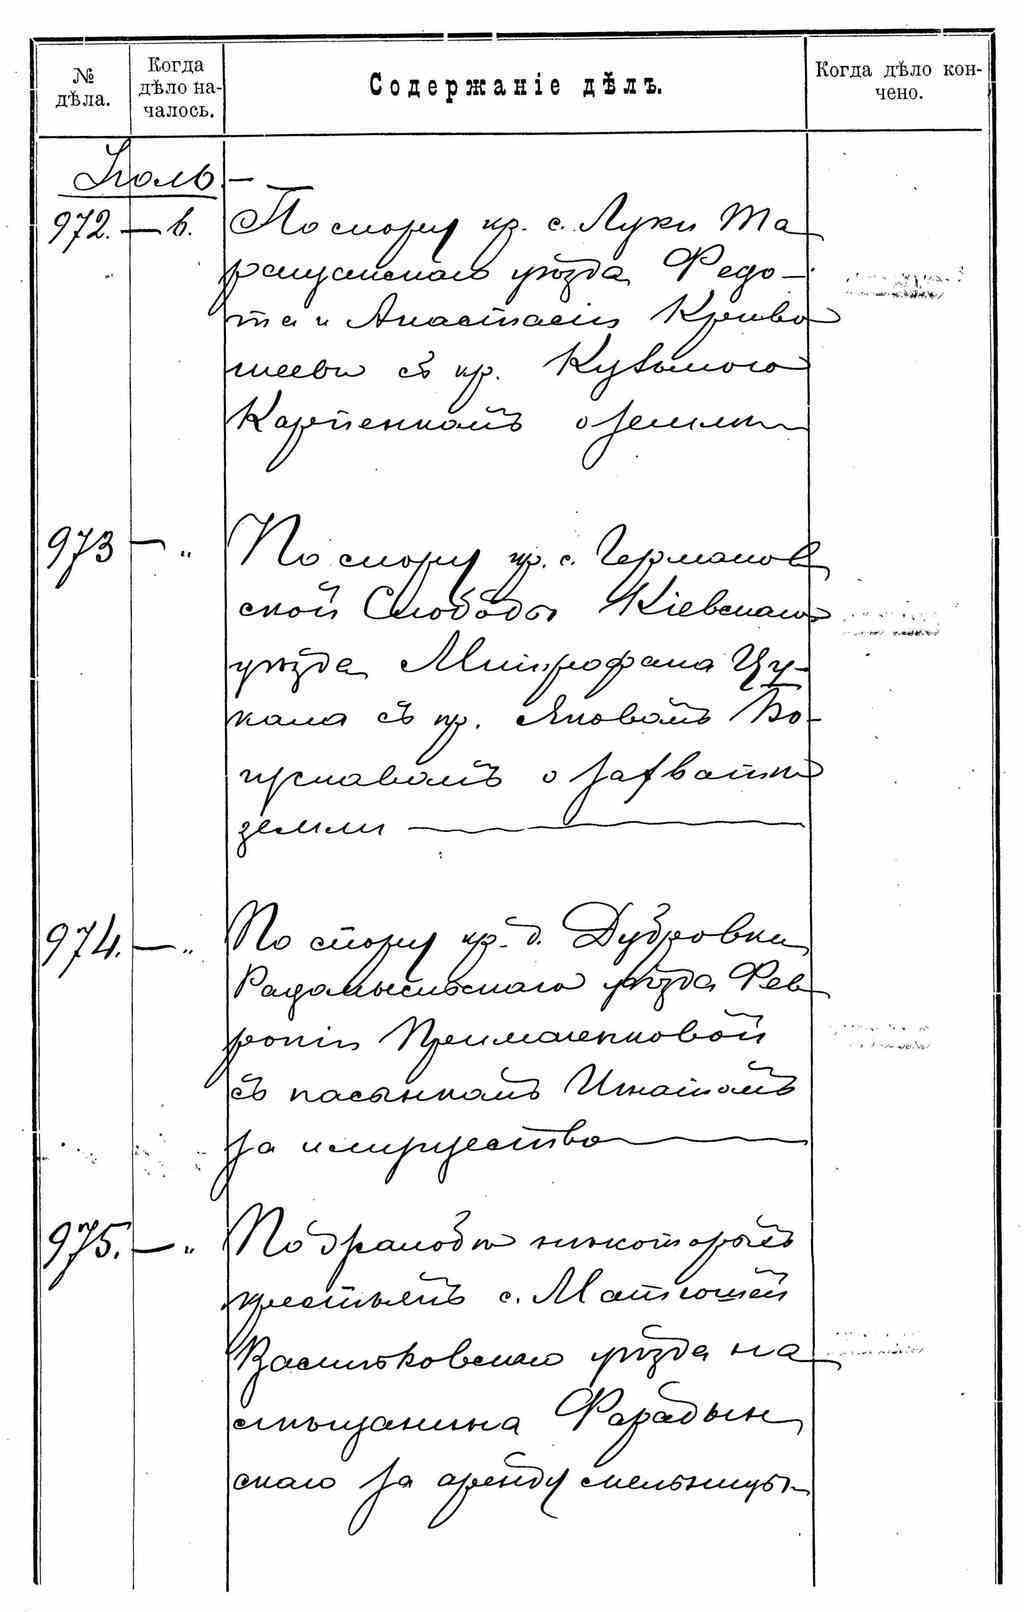 № дѣла.
Когда дѣло на-
чалось.
Содержаніе дѣлъ.
Когда дѣло кон-
чено.
Іюль.—
972. — 6. По спору кр. с. Луки Та
ращанскаго уѣзда Федо-
та и Анастасіи Криво
шеевы съ кр. Кузьмою
Карпенкомъ о землѣ
973 — " По спору кр. с. Германов
ской Слободы Кіевскаго
уѣзда Митрофана Цу-
кала съ кр. Яковомъ Бо-
гуславомъ о захватѣ
земли
974. — " По спору кр. д. Дубровки
Радомысльскаго уѣзда Фев
роніи Примаченковой
съ пасынкомъ Игнатомъ
за имущество
975. — " По жалобѣ нѣкоторыхъ
крестьянъ с. Матюшей
Васильковскаго уѣзда на
мѣщанина
скаго за аренду мельницы